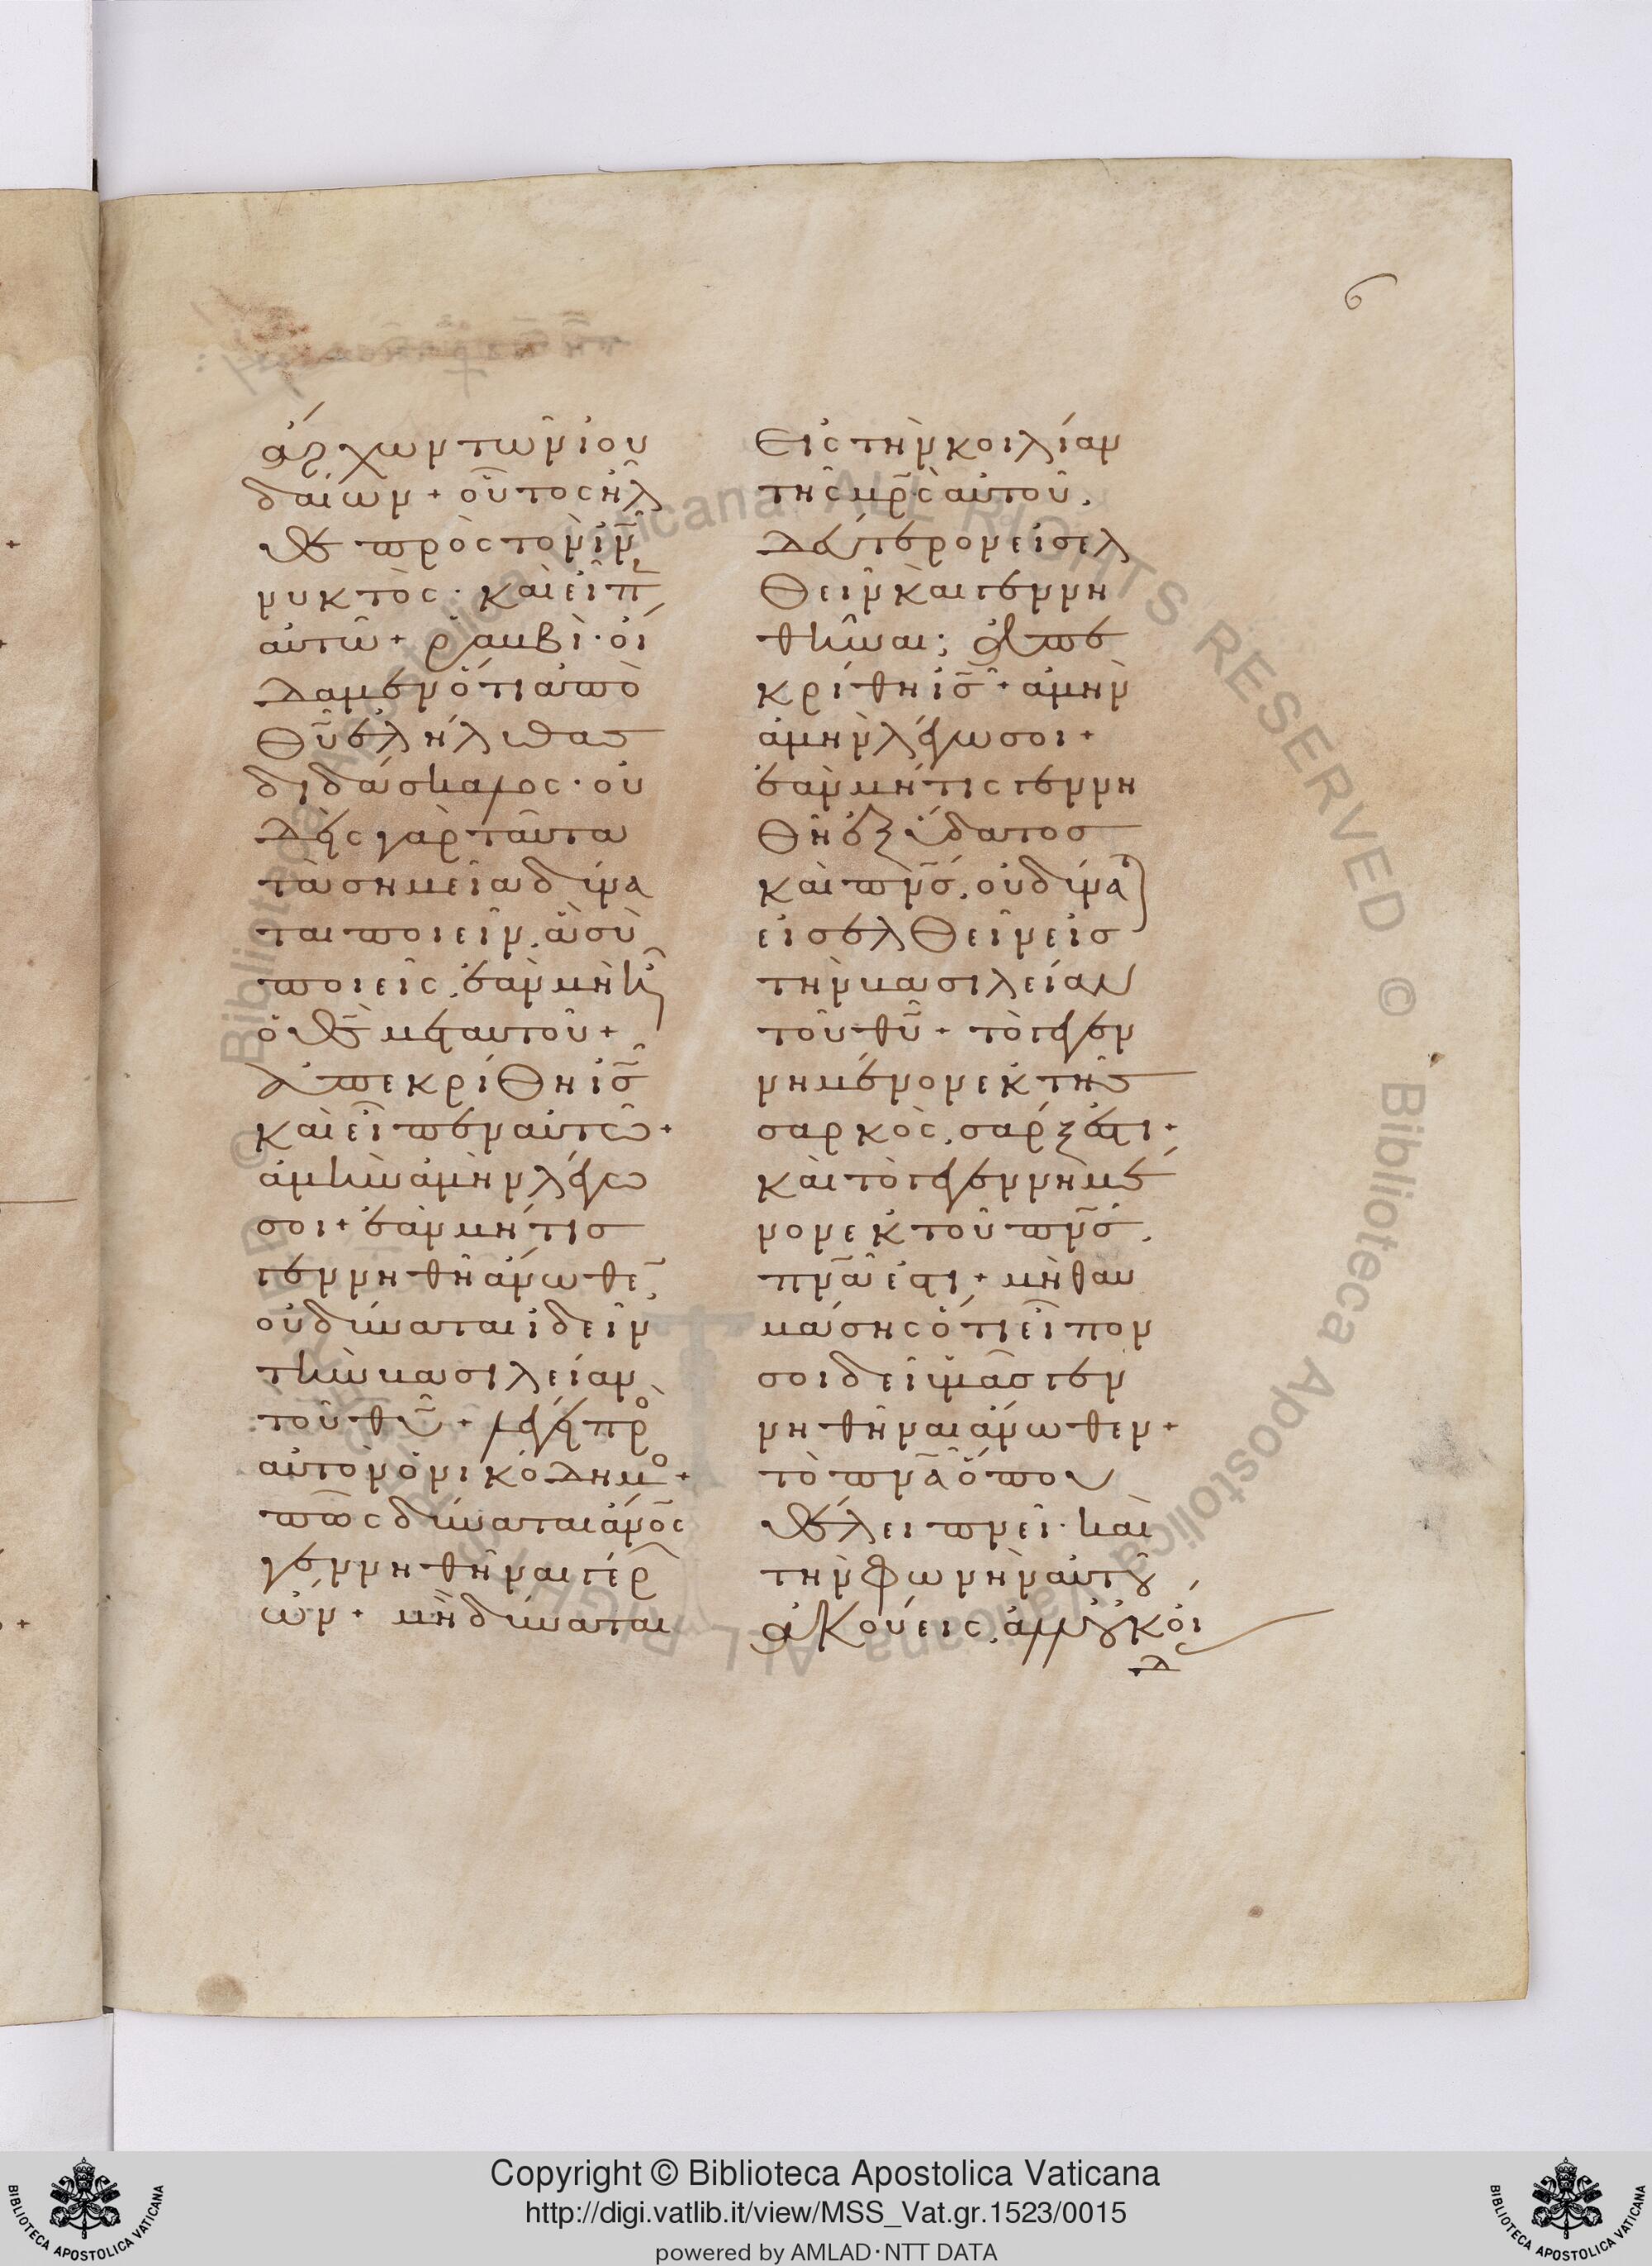 6
ἄρχων τῶν ἰου
δαίων + οὗτος ἦλ
θε πρὸς τὸν ἰν
νυκτὸς · καὶ εἶπ
αὐτῶ + ραμβὶ · οἴ
δαμεν ὅτι ἀπὸ
θυ ἐλήλυθας
διδάσκαλος · οὐ
δεὶς γὰρ ταῦτα
τὰ σημεῖα δύνα
ται ποιεῖν, ἃ σὺ
ποιεῖς, ἐὰν μὴ ἦ
ὁ θς μετ αυτοῦ +
ἀπεκρίθη ις
καὶ εἶπεν αὐτῶ +
ἀμὴν ἀμὴν λέγω
σοι + ἐὰν μή τις
γεννηθῆ ἄνωθε
οὐ δύναται ἰδεῖν
τὴν βασιλείαν
τοῦ θυ + λέγει πρ
αὐτὸν ὁ νικόδημο +
πῶς δύναται ἄνος
γεννηθῆναι γέρ
ων + μὴ δύναται
εἰς τὴν κοιλίαν
τῆς μρς αὐτοῦ,
δεύτερον εἰσελ
θεῖν καὶ γεννη
θῆναι; ἀπε
κρίθη ις + ἀμὴν
ἀμὴν λέγω σοι +
ἐὰν μή τις γεννη
θῆ ἐξ ὕδατος
καὶ πνς, οὐ δύνα
εἰσελθεῖν εἰς
τὴν βασιλείαν
τοῦ θυ + τὸ γεγεν
νημένον ἐκ τῆς
σαρκὸς, σάρξ ἐστι +
καὶ τὸ γεγεννημέ
νον ἐκ τοῦ πνς,
πνα ἐστι + μὴ θαυ
μάσης ὅτι εἶπον
σοι δεῖ ὑμᾶς γεν
νηθῆναι ἄνωθεν +
τὸ πνα ὅπου
θέλει πνεῖ · καὶ
τὴν φωνὴν αὐτοῦ
ἀκούεις, ἀλλ οὐκ οἶ
δ
Copyright © Biblioteca Apostolica Vaticana
http://digi.vatlib.it/view/MSS_Vat.gr.1523/0015
powered by AMLAD·NTT DATA